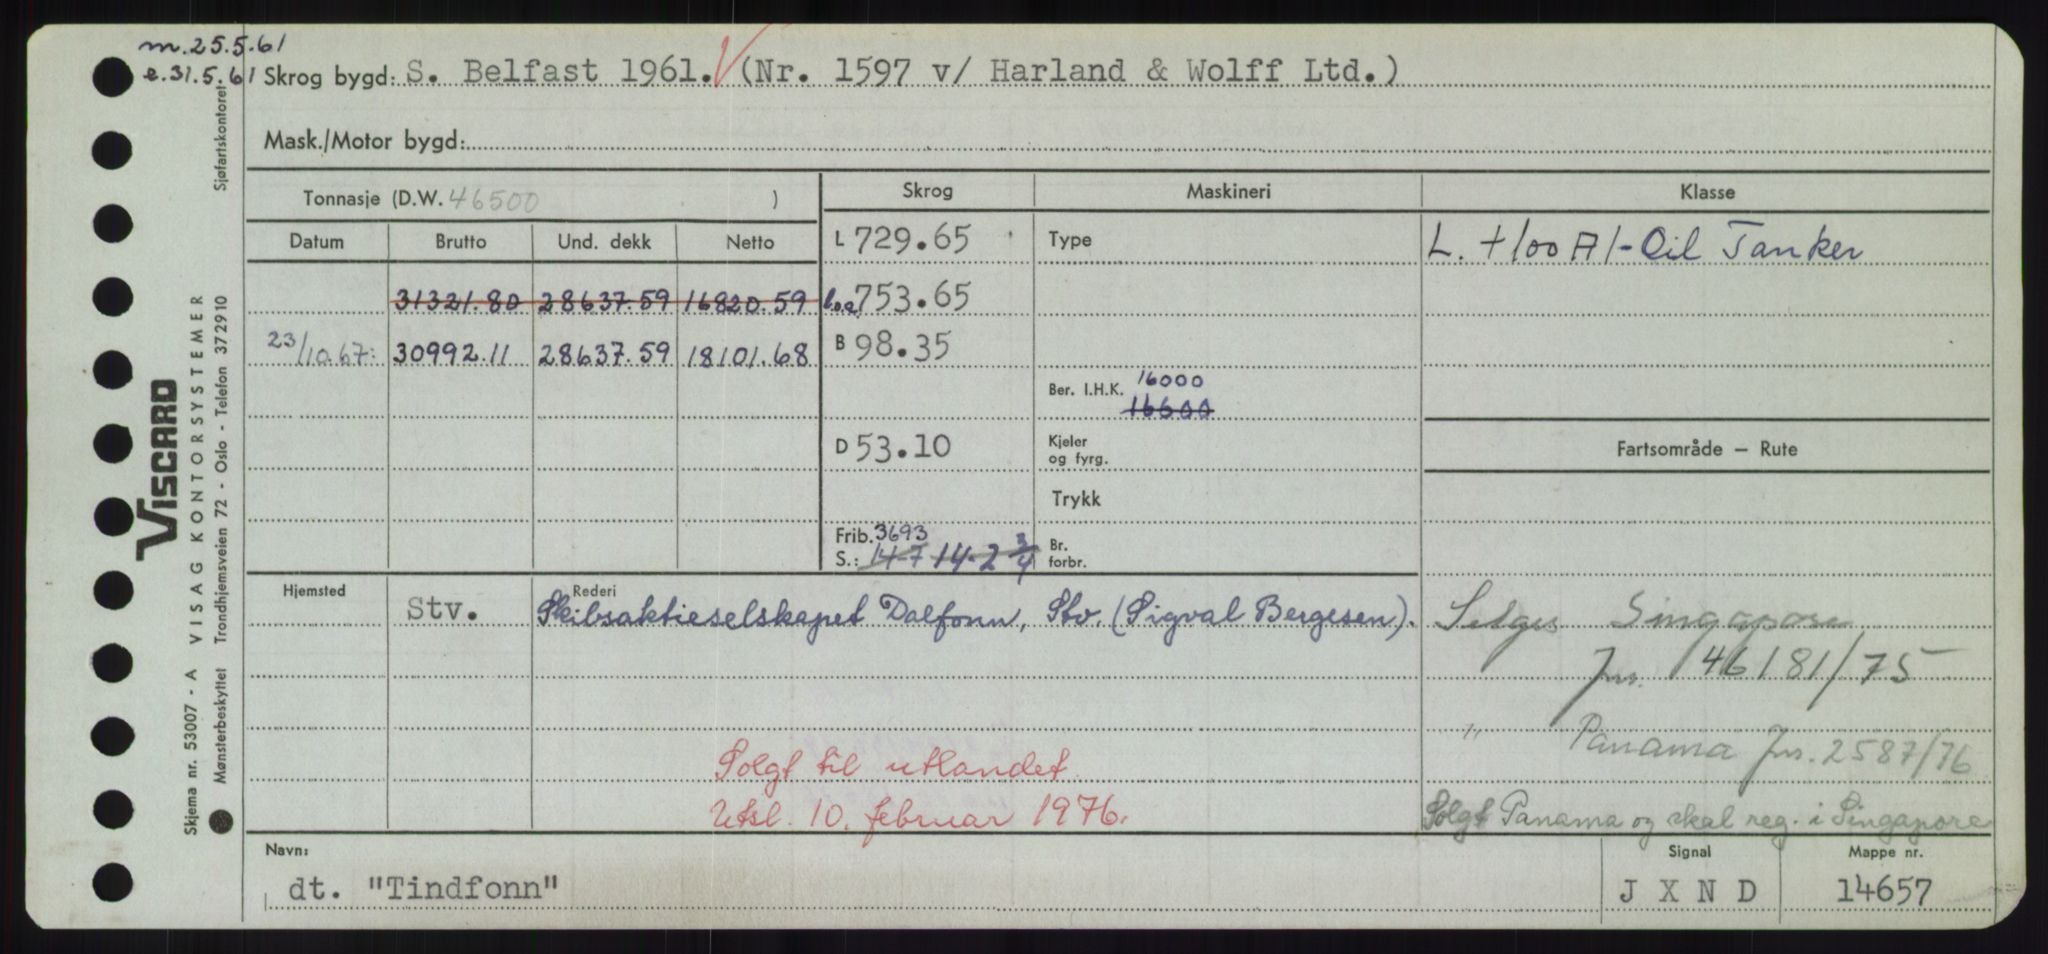 m.25.5.61
e.31.5.61 Skrog bygd: S. Belfast 1961. (Nr. 1597 v/ Harland & Wolff Ltd.)
Mask./Motor bygd:
Tonnasje (D.W. 46500 )
Skrog Maskineri Klasse
Datum Brutto Und. dekk Netto
L 729.65 Type L. +100 A1-Oil Tanker
31321.80 28637.59 16820.59 l.o.a. 753.65
23/10.67: 30992.11 28637.59 18101.68 B 98.35
Ber. I.H.K. 16000
16600
D 53.10 Kjeler og fyrg. Fartsområde – Rute
Trykk
Frib. 3693
S.: 14-7 14-2 3/4 Br. forbr.
Hjemsted Rederi
Stv. Skibsaktieselskapet Dalfonn, Stv. (Sigval Bergesen). Selges Singapore
Jnr. 46181/75
" Panama Jnr. 2587/76
Solgt til utlandet
Utsl. 10. februar 1976. Solgt Panama og skal reg. i Singapore
Navn: Signal Mappe nr.
dt. "Tindfonn" J X N D 14657
VISCARD
Skjema nr. 53007 - A VISAG KONTORSYSTEMER
Mønsterbeskyttet Trondhjemsveien 72 - Oslo - Telefon 372910 Sjøfartskontoret